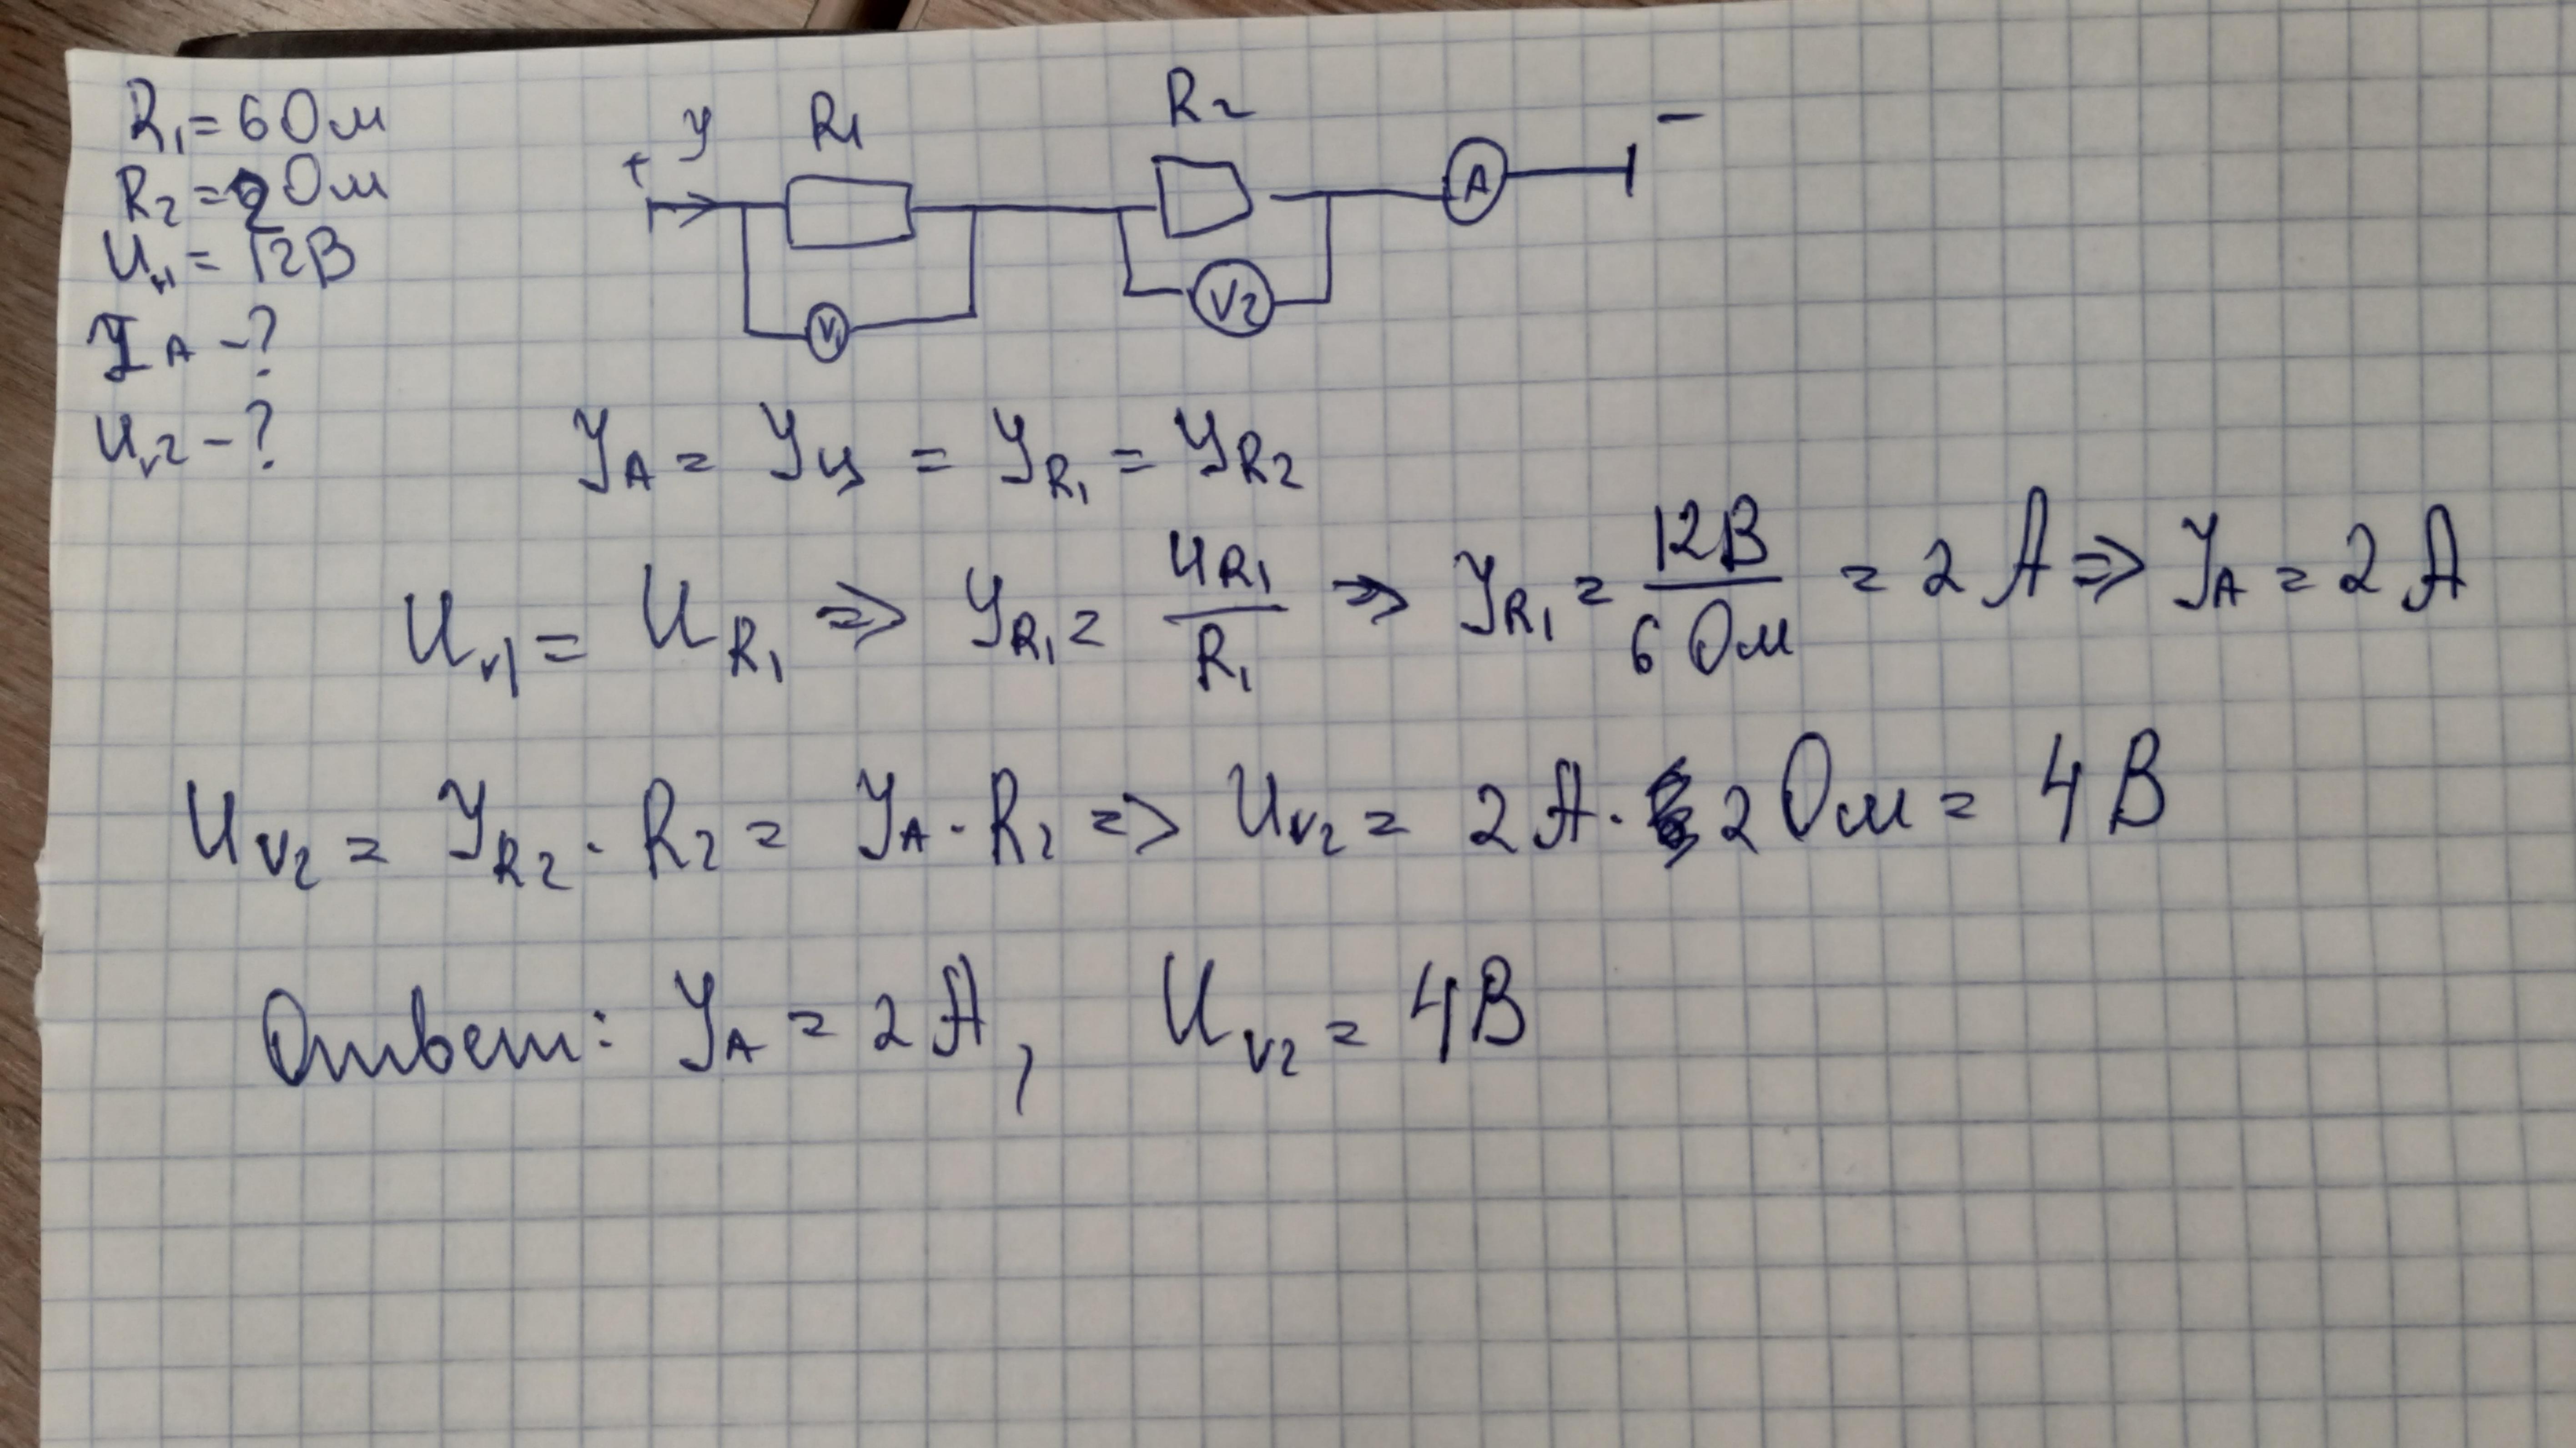 R₁=6 Ом
R₂=2 Ом
Uᵥ₁= 12В
I A -?
Uᵥ₂-?
+ У R₁ R₂ -
V₁ V₂ A
У_A = У_ц = У_R₁ = У_R₂
U_v₁ = U_R₁ => У_R₁ = U_R₁ / R₁ => У_R₁ = 12В / 6 Ом = 2 А => У_A = 2 А
U_v₂ = У_R₂ · R₂ = У_A · R₂ => U_v₂ = 2 А · 2 Ом = 4 В
Ответ: У_A = 2 А, U_v₂ = 4В